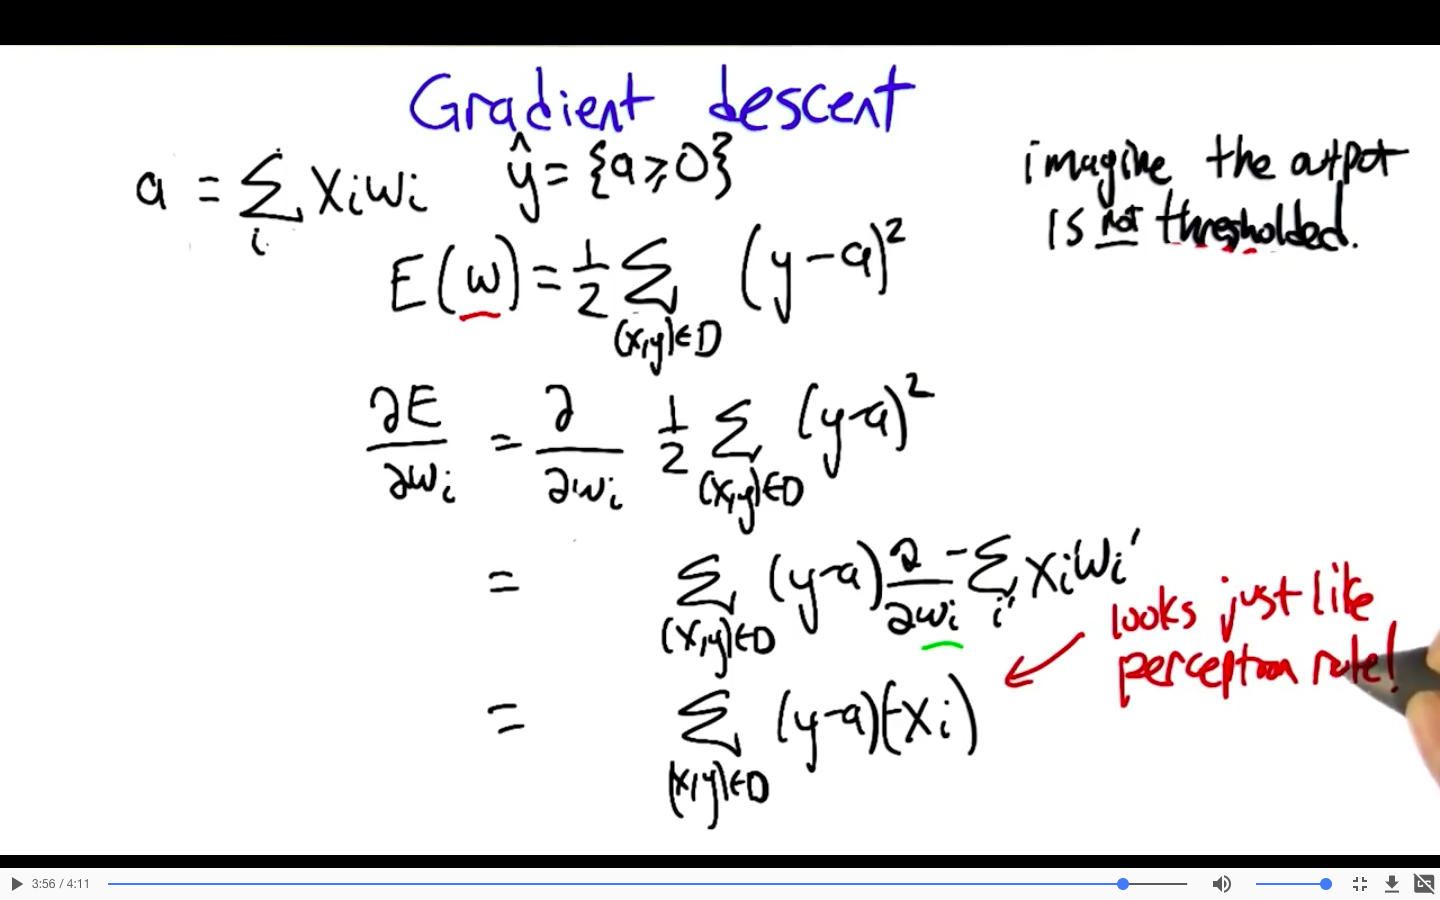 Gradient descent
a = ∑ᵢ xᵢwᵢ   ŷ = {a ≥ 0}
imagine the output
is not thresholded.
E(w) = 1/2 ∑_(x,y)∈D (y-a)²
∂E/∂wᵢ = ∂/∂wᵢ 1/2 ∑_(x,y)∈D (y-a)²
= ∑_(x,y)∈D (y-a) ∂/∂wᵢ -∑ᵢ′ xᵢ′wᵢ′
looks just like
perceptron rule!
= ∑_(x,y)∈D (y-a)(-xᵢ)
3:56 / 4:11